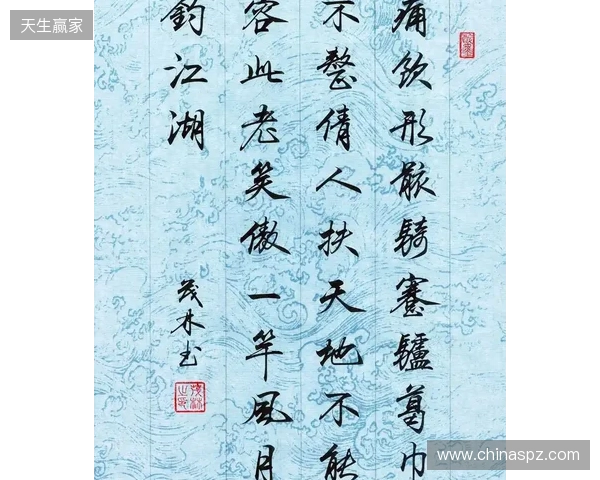 天生赢家
痛饮形骸騎蹇驢葛巾
不整倩人扶天地不能
容此老笑傲一竿風月
钓江湖
茂林书
www.chinaspz.com